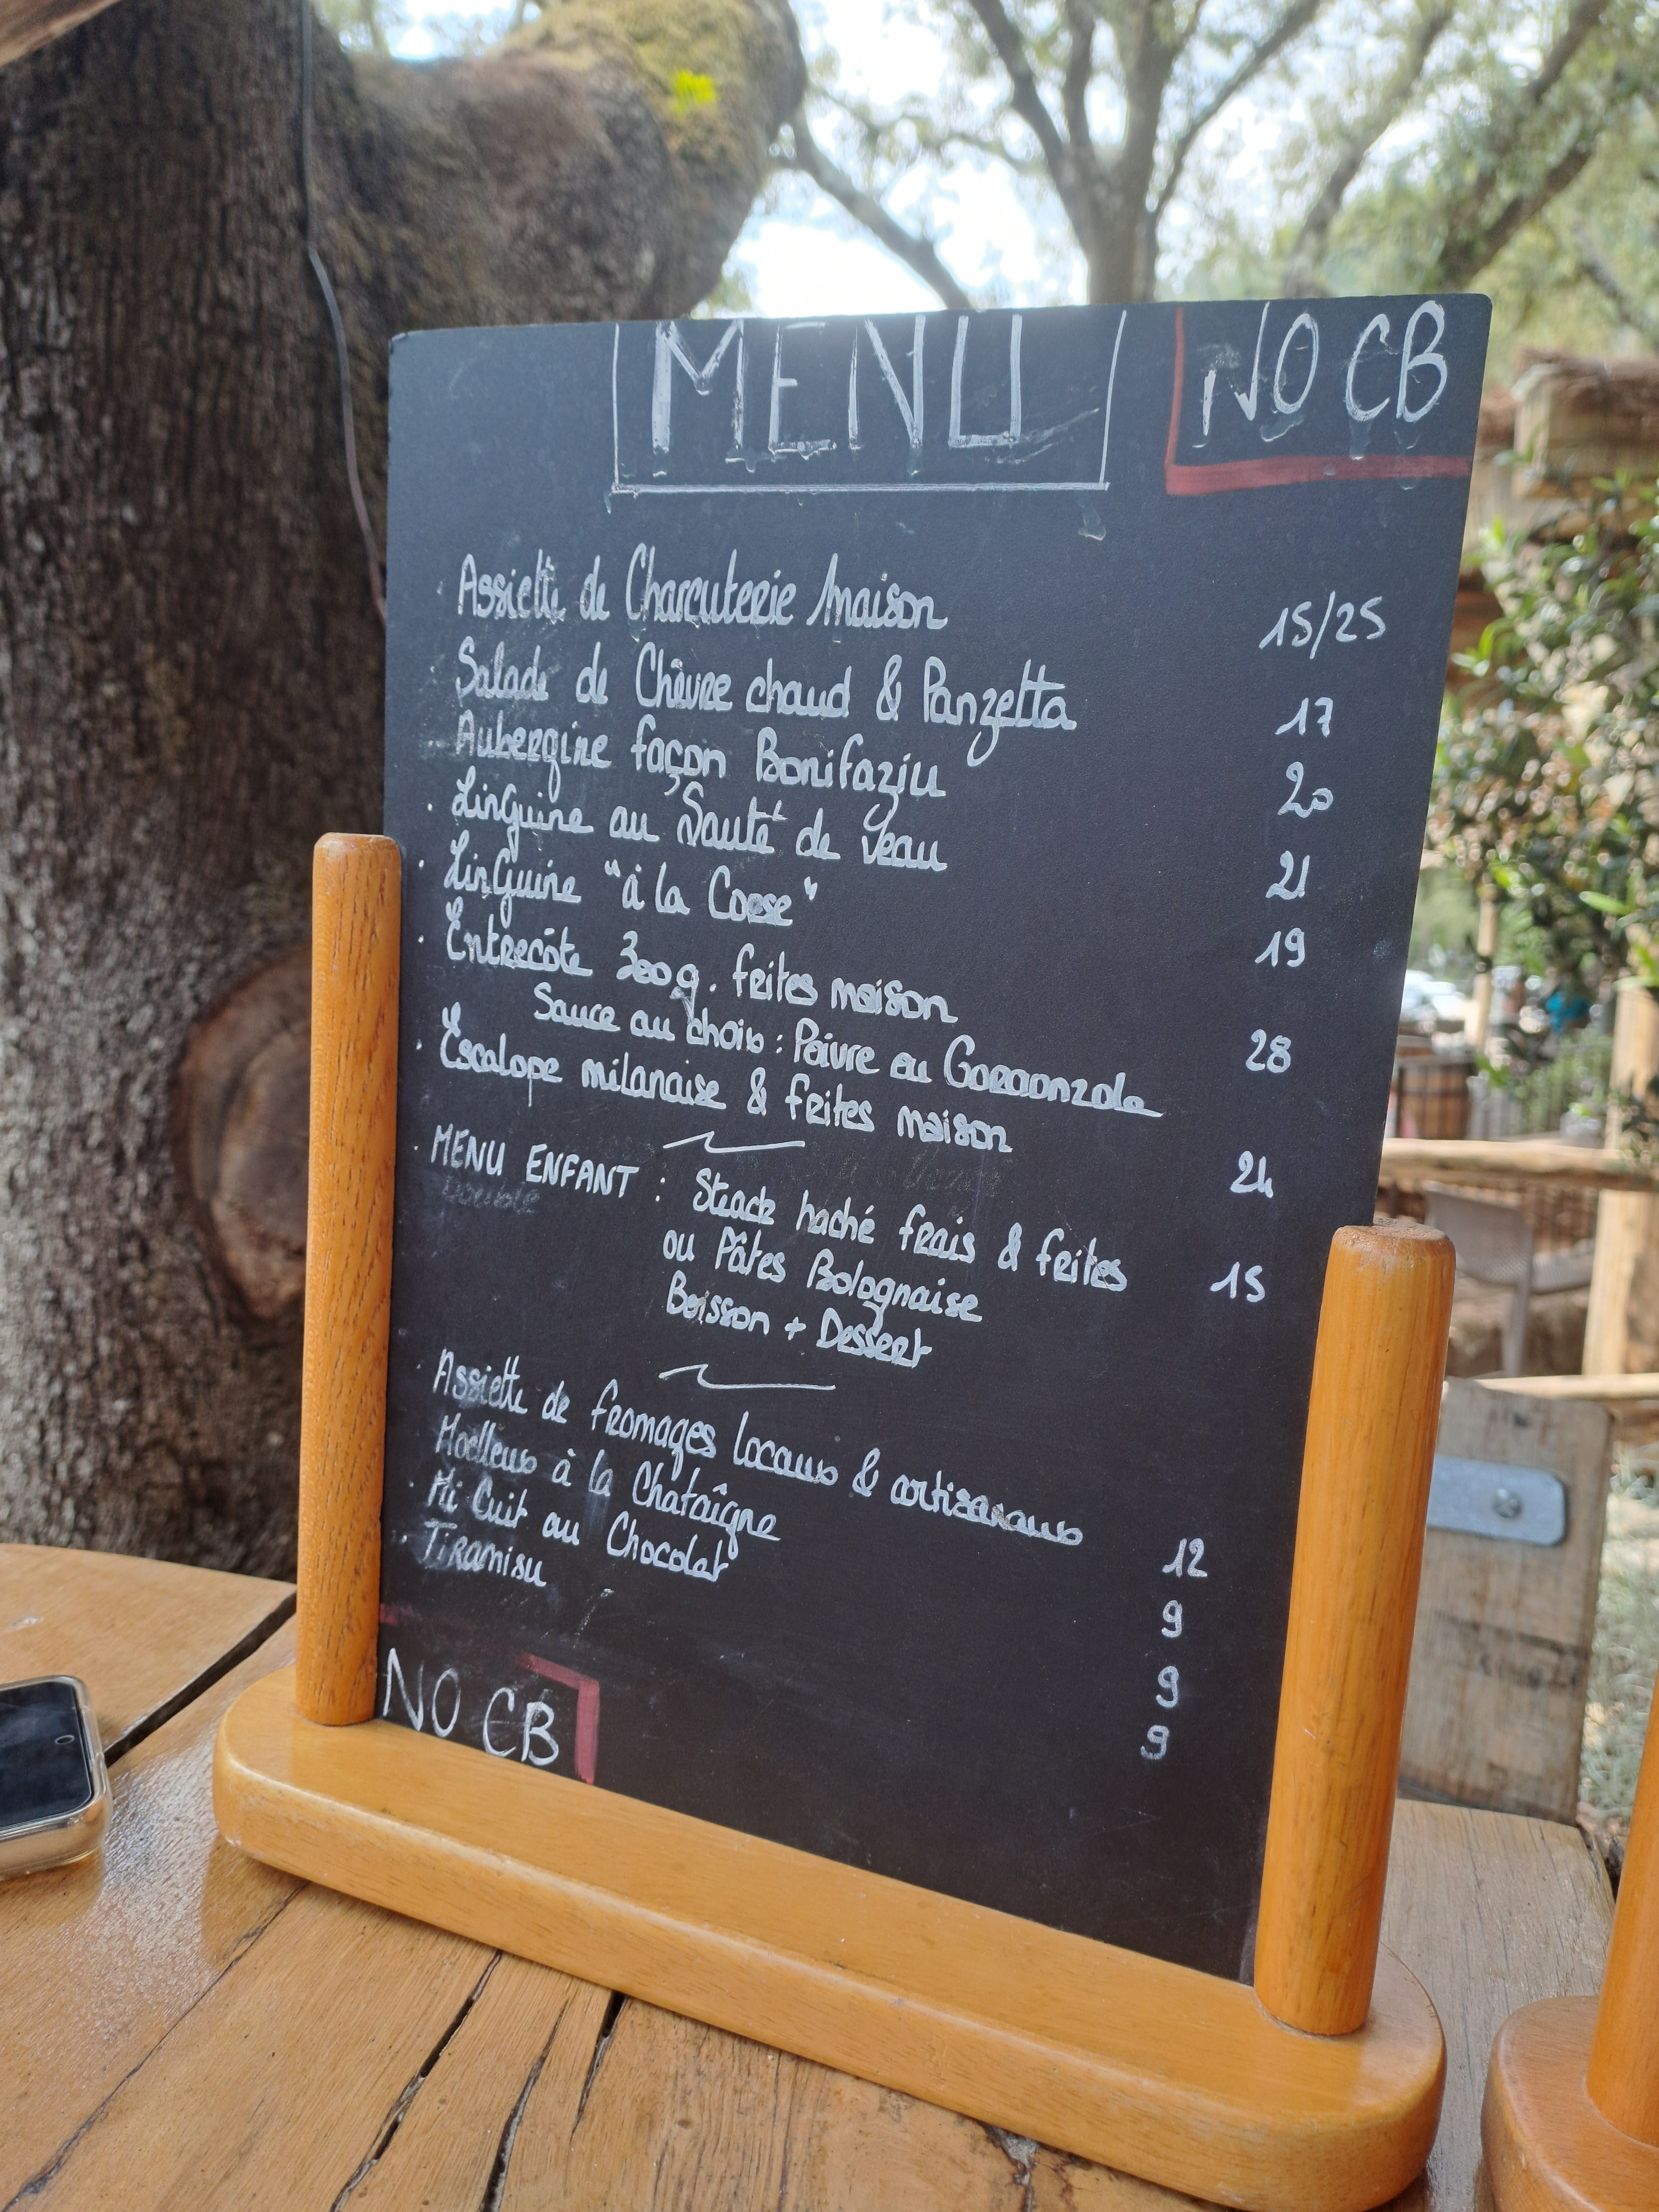 MENU NO CB
Assiette de Charcuterie maison 15/25
Salade de Chèvre chaud & Panzetta 17
Aubergine façon Bonifaziu 20
Linguine au Sauté de veau 21
Linguine "à la Corse" 19
Entrecôte 300g. frites maison 28
Sauce au choix : Poivre ou Gorgonzola
Escalope milanaise & frites maison 24
MENU ENFANT : Steack haché frais & frites 15
ou Pâtes Bolognaise
Boisson + Dessert
Assiette de fromages locaux & artisanaux 12
Moelleux à la Chataîgne 9
Mi Cuit au Chocolat 9
Tiramisu 9
NO CB